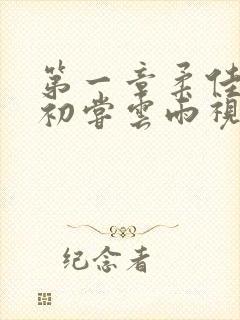 第一章柔佳
初尝云雨視
纪念者